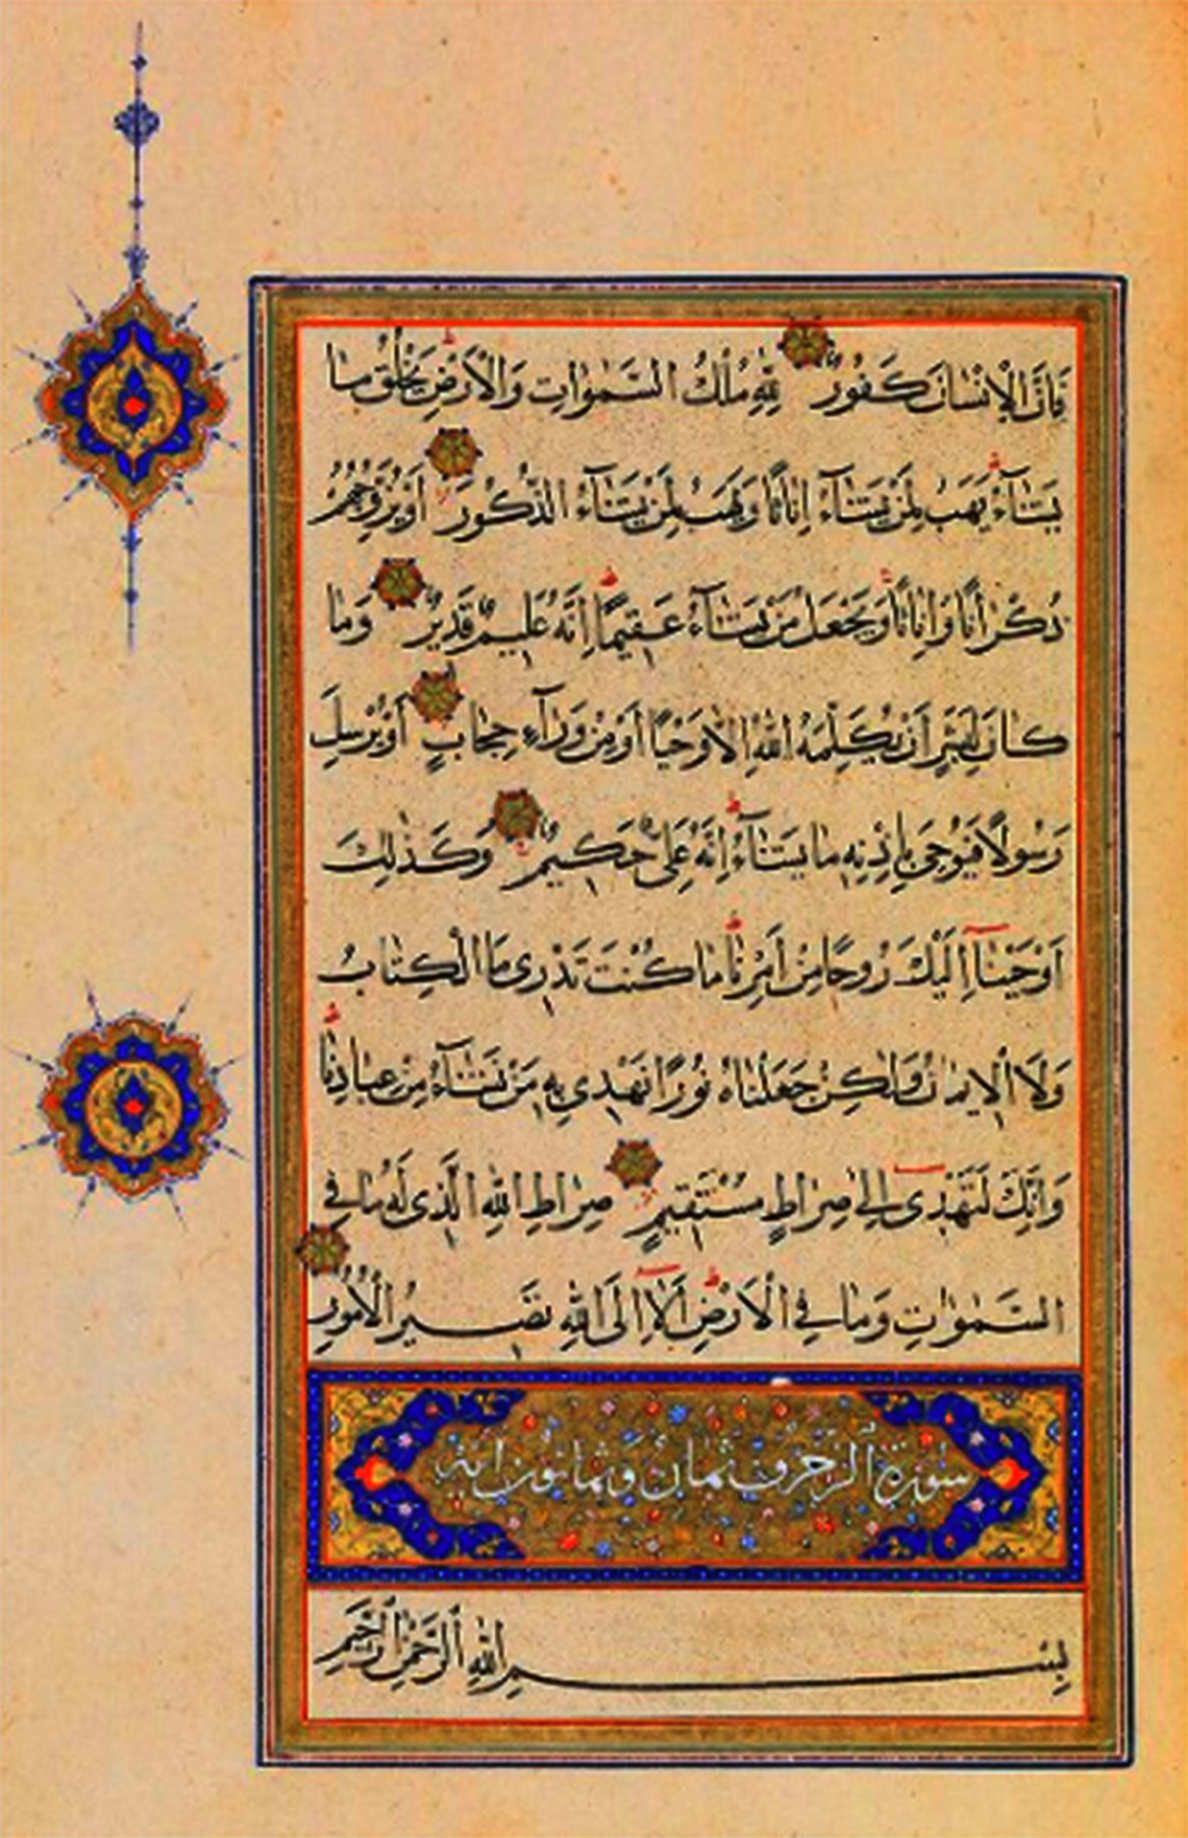 فَإِنَّ الْإِنْسَانَ كَفُورٌ لِلَّهِ مُلْكُ السَّمٰوَاتِ وَالْأَرْضِ يَخْلُقُ مَا
يَشَآءُ يَهَبُ لِمَنْ يَشَآءُ اِنَاثًا وَيَهَبُ لِمَنْ يَشَآءُ الذُّكُورَ اَوْ يُزَوِّجُهُمْ
ذُكْرَانًا وَاِنَاثًا وَيَجْعَلُ مَنْ يَشَآءُ عَقِيمًا اِنَّهُ عَلِيمٌ قَدِيرٌ وَمَا
كَانَ لِبَشَرٍ اَنْ يُكَلِّمَهُ اللّٰهُ اِلَّا وَحْيًا اَوْ مِنْ وَرَآءِ حِجَابٍ اَوْ يُرْسِلَ
رَسُولًا فَيُوحِيَ بِاِذْنِهِ مَا يَشَآءُ اِنَّهُ عَلِيٌّ حَكِيمٌ وَكَذٰلِكَ
اَوْحَيْنَآ اِلَيْكَ رُوحًا مِنْ اَمْرِنَا مَا كُنْتَ تَدْرِى مَا الْكِتَابُ
وَلَا الْاِيمَانُ وَلٰكِنْ جَعَلْنَاهُ نُورًا نَهْدِى بِهِ مَنْ نَشَآءُ مِنْ عِبَادِنَا
وَاِنَّكَ لَتَهْدِى اِلٰى صِرَاطٍ مُسْتَقِيمٍ صِرَاطِ اللّٰهِ الَّذِى لَهُ مَا فِى
السَّمٰوَاتِ وَمَا فِى الْاَرْضِ اَلَآ اِلَى اللّٰهِ تَصِيرُ الْاُمُورُ
سُورَةُ الزُّخْرُفِ ثَمَانٌ وَثَمَانُونَ اٰيَة
بِسْمِ اللّٰهِ الرَّحْمٰنِ الرَّحِيمِ